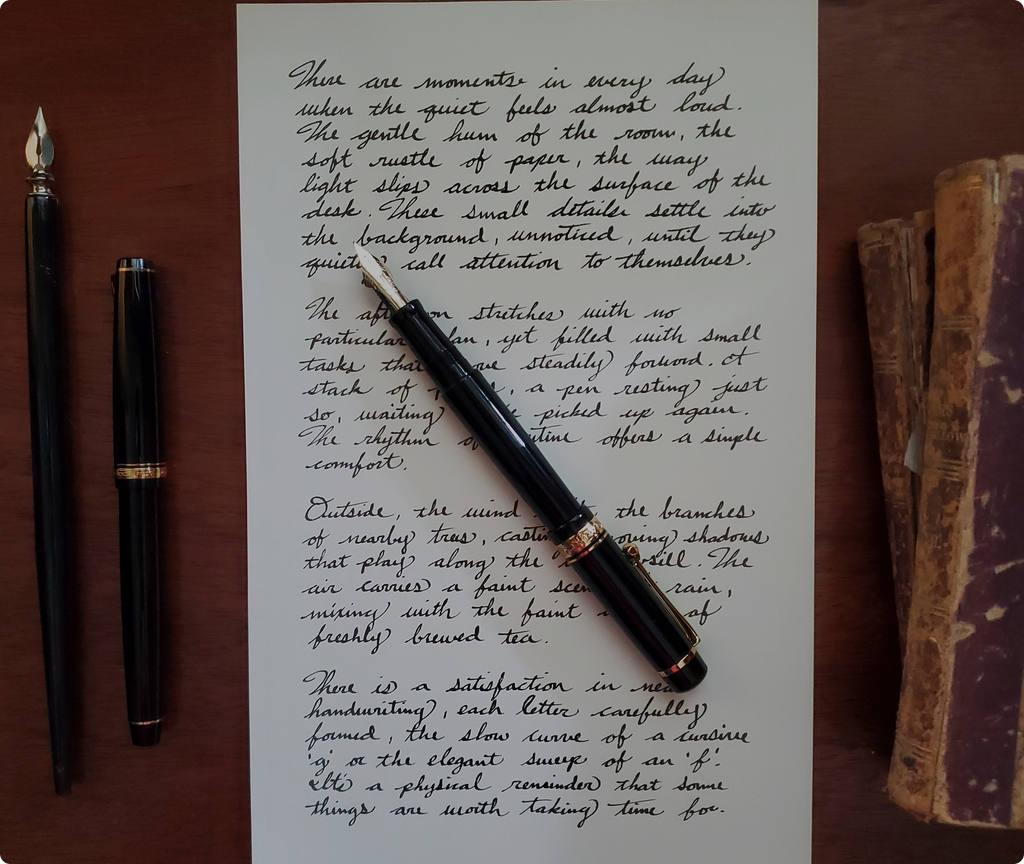 There are moments in every day
when the quiet feels almost loud.
The gentle hum of the room, the
soft rustle of paper, the way
light slips across the surface of the
desk. These small details settle into
the background, unnoticed, until they
call attention to themselves.
The stretches with no
particular, yet filled with small
tasks steadily forward. A
stack of, a pen resting just
so, waiting picked up again.
The rhythm offers a simple
comfort.
Outside, the wind the branches
of nearby trees, shadows
that play along the. The
air carries a faint rain,
mixing with the faint of
freshly brewed tea.
There is a satisfaction in
handwriting, each letter carefully
formed, the slow curve of a cursive
'g' or the elegant sweep of an 'f'.
It's a physical reminder that some
things are worth taking time for.